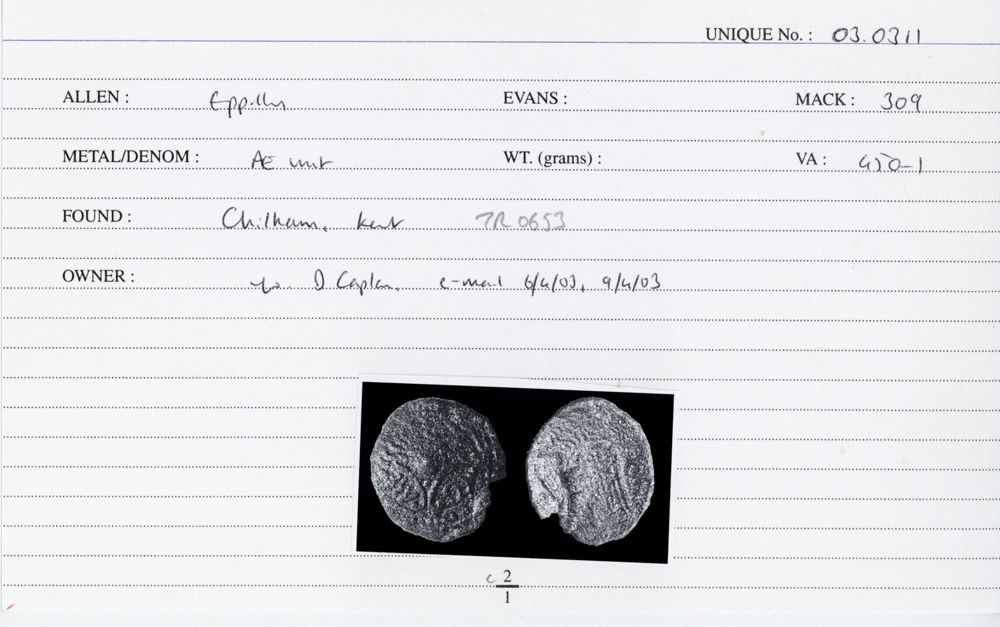 UNIQUE No. : 03.0311
ALLEN : Eppillus EVANS : MACK : 309
METAL/DENOM : AE unit WT. (grams) : VA : 450-1
FOUND : Chilham, Kent TR 0653
OWNER : D Caplan. e-mail 6/4/03, 9/4/03
c 2
1